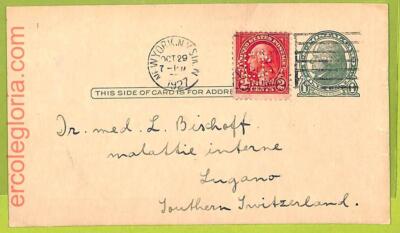 ercolegloria.com
NEW YORK, N.Y. STA.
OCT 29
1927
THIS SIDE OF CARD IS FOR ADDRE
UNITED STATES POSTAGE
2 CENTS 2
Dr. med. L. Bischoff
malattie interne
Lugano
Southern Switzerland.